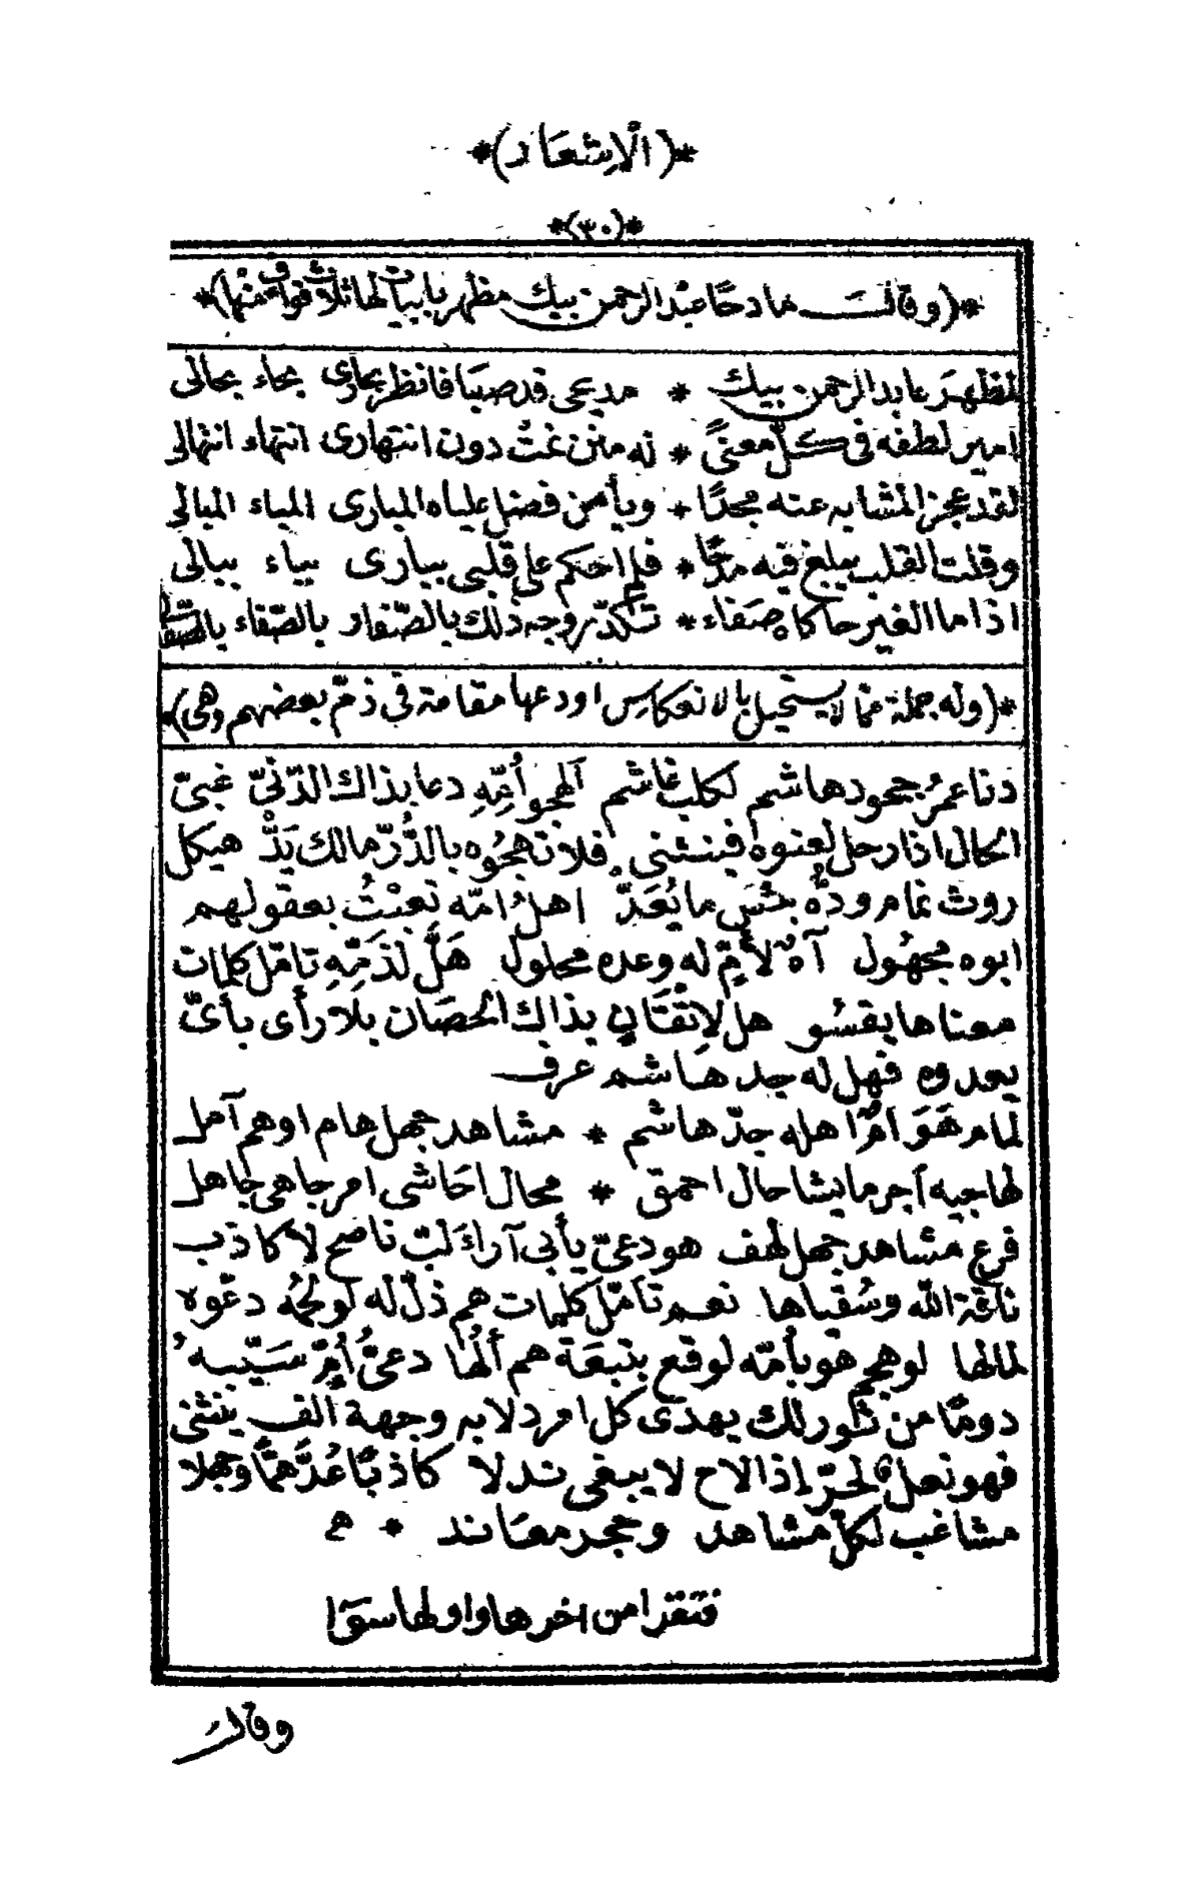 *(الْاِشعَار)*
*(٣٠)*
*(وقالَ مادحًا عبْد الرحمن بيك مظهر بابيات لها ثلاث قواف منها)*
لمظهرَ عابد الرحمن بيك * مديحى قد صبَا فانظر بحارى بحاء بحالى
امير لطفه فى كلّ معنىً * له منن غثْ دون انتهارى انتهاء انتهالى
لقد عجز المشابه عنه مجدًا * ويأمن فضل علياه المبارى المباء المبالى
وقلت القلب يبلغ فيه مدحًا * فلم احكم على قلبى ببارى بباء ببالى
اذا ما الغير حاكاه صَفاء * تكدّر وجه ذلك بالصّفار بالصّفاء بالصّفال
*(وله جملة ممّا لا يستحيل بالانعكاس اودعها مقامة فى ذمّ بعضهم وهى)*
دنا عمرُ جحود هاشم لكلب غاشم آلهجو اُمِّهِ دعا بذاك الدّنىّ غبىّ
الحال اذا رحل لعنوه فينثنى فلا تهجُوه بالدُّرّ مالك يَذُّ هيكل
روث نمام ودُّه بخْس ما يُعَدّ اهلُ امّه تعبْتُ بعقولهم
ابوه مجهُول آهٌ لأمّ له وعده محلول هَلَّ لذَمِّهِ تامّل كلمات
معناها يقسُو هل لاِتْقَان بذاك الحصَان بلا رأى بأىّ
يعدوه فهل له جد هَاشم عرف
لمام هَوَ امرٌ اهله جدّ هاشم * مشاهد جهل هام اوهم آمل
لهاجيه آجر ما يشا حال احمق * محال احَاشى امر جاهى جاهل
فرع مشاهد جهل لهف هو دعىّ يأبى آراكَ لبّ ناصح لا كاذب
ناقة الله وسُقياها نعم تأمّل كلمات هم ذلّ له لولجُه دعّوه
لمالها لو هجم هو بأمّه لوقع بنبعَة هم ألُها دعىُّ اُمِّ سَيّبهُ
دومًا من ثور لك يهدى كل امر دلا به وجهة آلف ينثنى
فهو نعل لحرّ إذا لاح لا يبغى ندلا كاذبًا عُدَّ همًّا وجهلا
مشاغب لكلّ مشاهد وحجر معَاند * م
فتقرا من اخرها واولها سوَآ
وقالَ